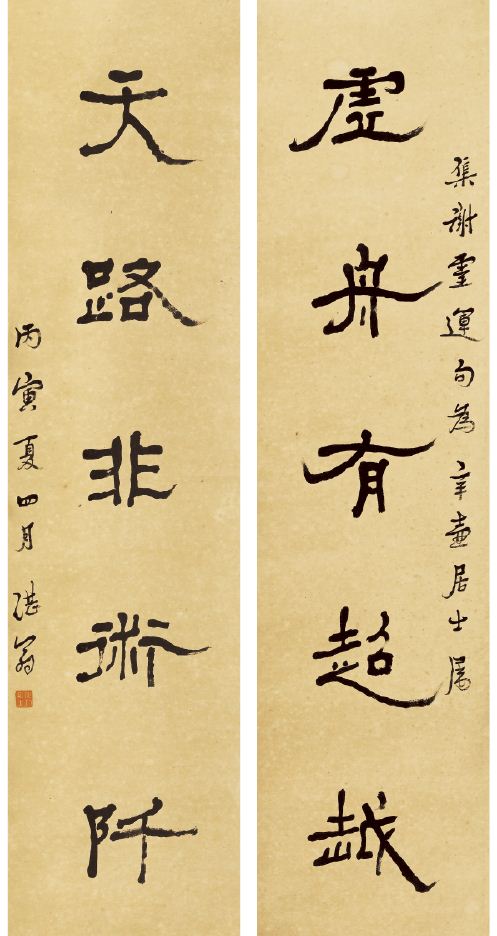 集謝靈運句為辛壺居士属
虚舟有超越
天路非術阡
丙寅夏四月 湛翁